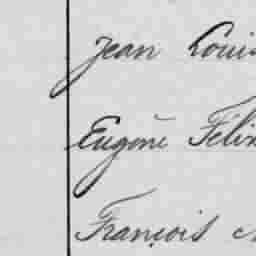 Jean Louis
Eugène Félix
François